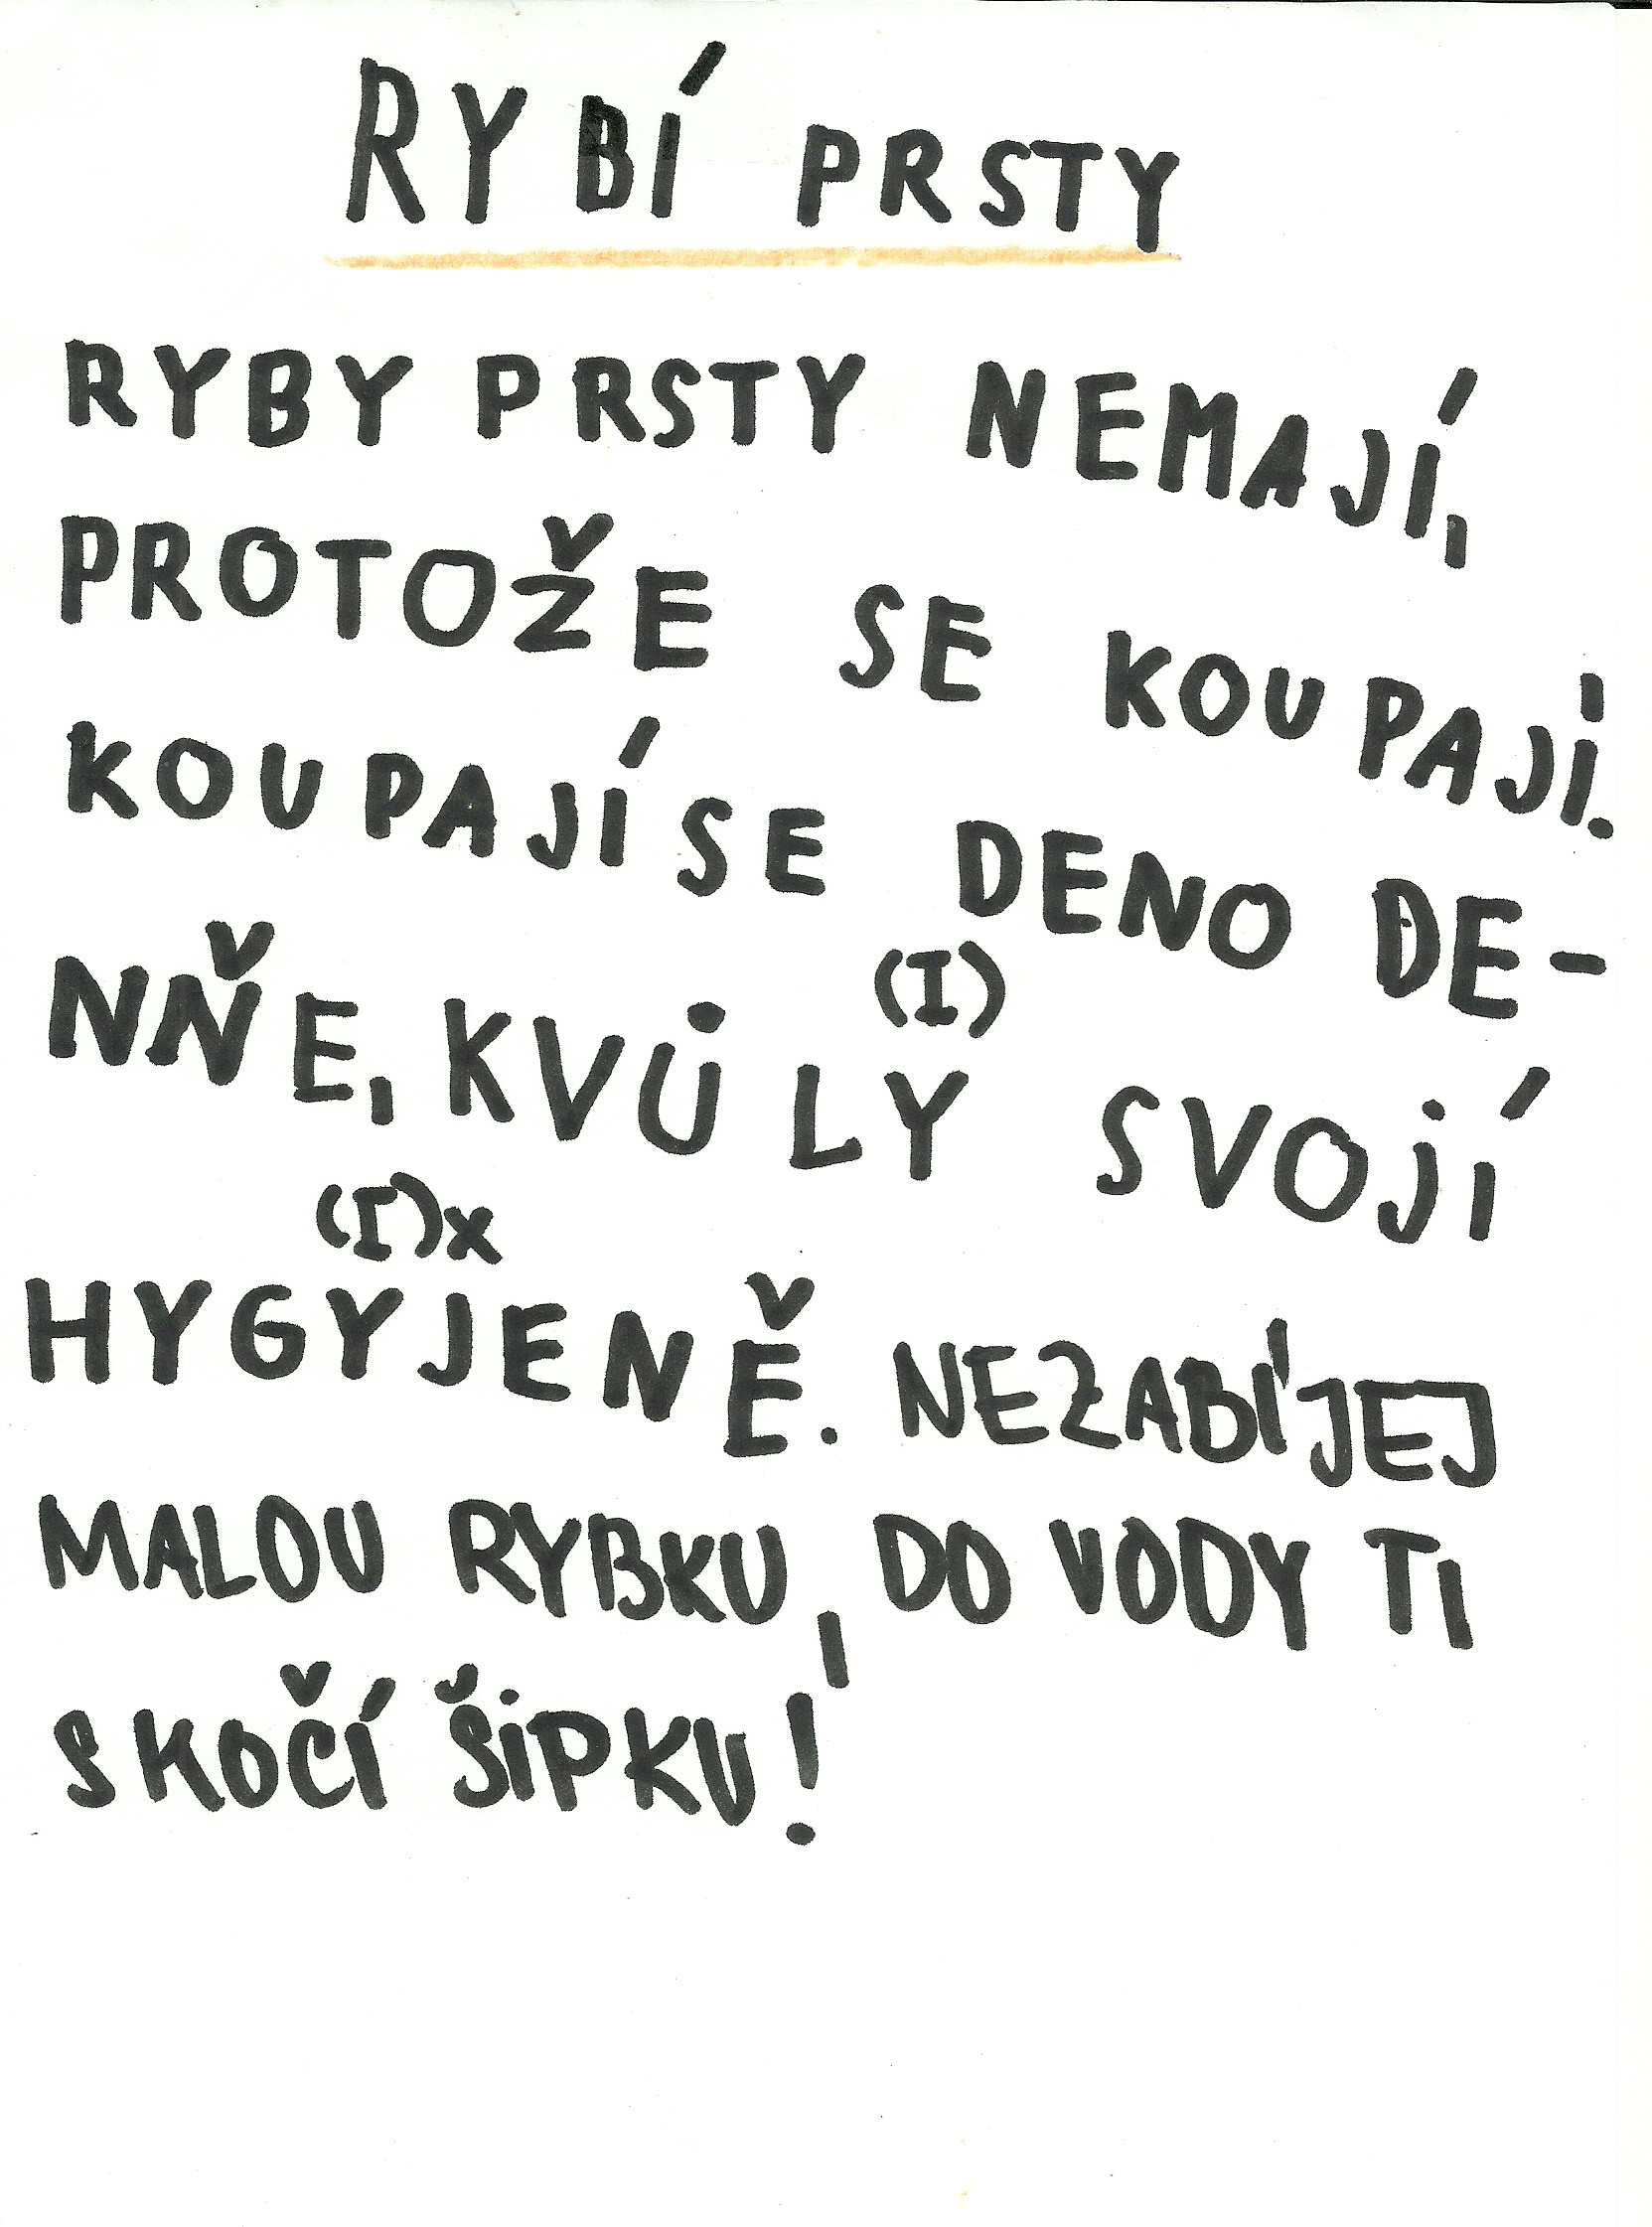 RYBÍ PRSTY
RYBY PRSTY NEMAJÍ,
PROTOŽE SE KOUPAJÍ.
KOUPAJÍ SE DENO DE-
(I)
NŇE, KVŮLY SVOJÍ
(I)x
HYGYJENĚ. NEZABÍJEJ
MALOU RYBKU, DO VODY TI
SKOČÍ ŠIPKU!